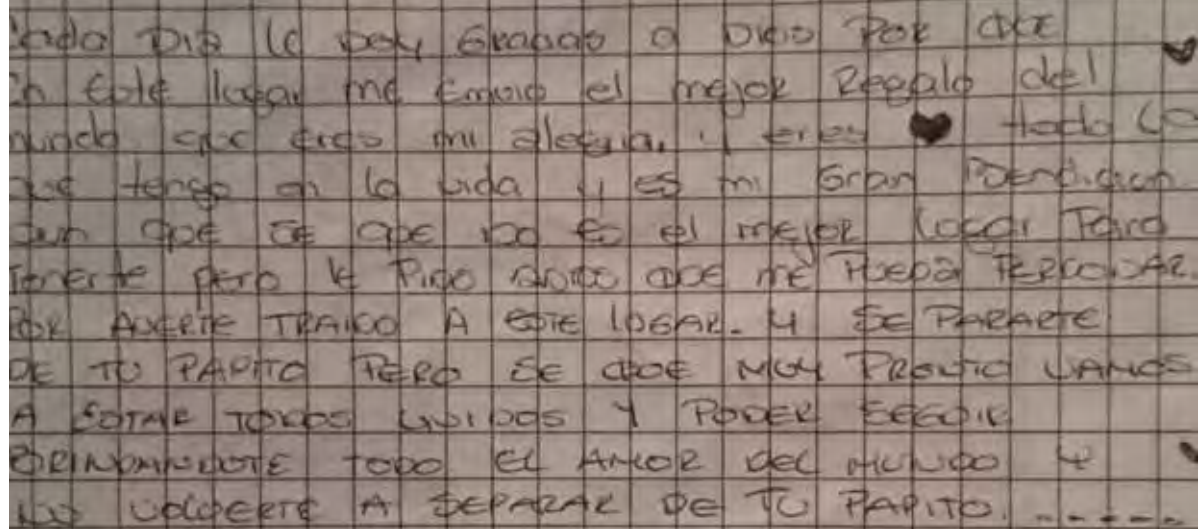 Cada Dia le doy Gracias a Dios Por que
en este lugar me Envio el mejor Regalo del
mundo que eres mi alegria, y eres ♥ todo lo
que tengo en la vida y es mi Gran Bendicion
aun que se que no es el mejor lugar Para
Tenerte pero le Pido adios que me Pueda PERDONAR
POR AVERTE TRAIDO A ESTE LUGAR. Y SE PARARTE
DE TU PAPITO PERO SE QUE MUY PRONTO VAMOS
A ESTAR TODOS UNIDOS Y PODER SEGUIR
BRINDANDOTE TODO EL AMOR del MUNDO Y
NO VOLVERTE A SEPARAR DE TU PAPITO. -----